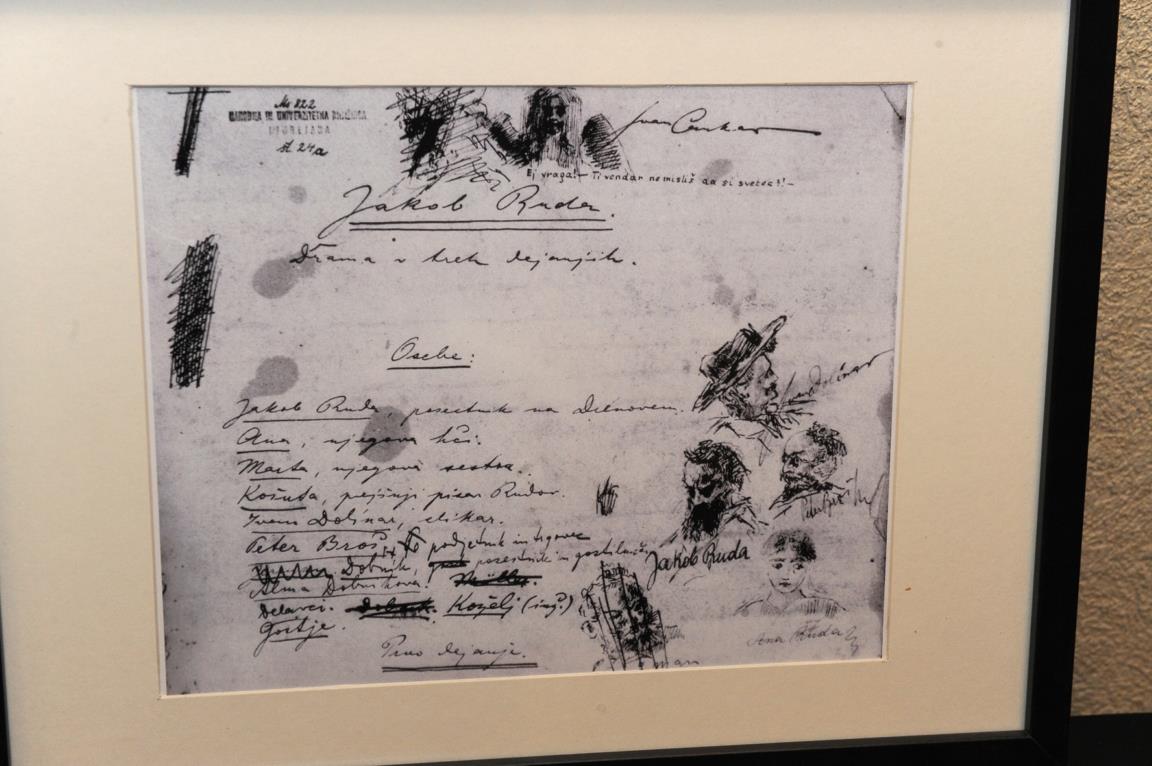 Ms 822
NARODNA IN UNIVERZITETNA KNJIŽNICA
LJUBLJANA
št. 24a
Ivan Cankar
Ej vraga! – Ti vendar ne misliš da si svetec?! –
Jakob Ruda.
Drama v treh dejanjih.
Osebe:
Jakob Ruda, posestnik na Drenovem.
Ana, njegova hči.
Marta, njegova sestra.
Košuta, prejšnji pisar Rudov.
Ivan Dolinar, slikar.
Peter Broš, podjetnik in trgovec
Dobnik, posestnik in gostilničar
Alma Dobnikova
Delavci. Dobnik. Koželj (inž.)
Gostje.
Prvo dejanje.
Ivan Dolinar
Peter Broš
Jakob Ruda
Ana Ruda